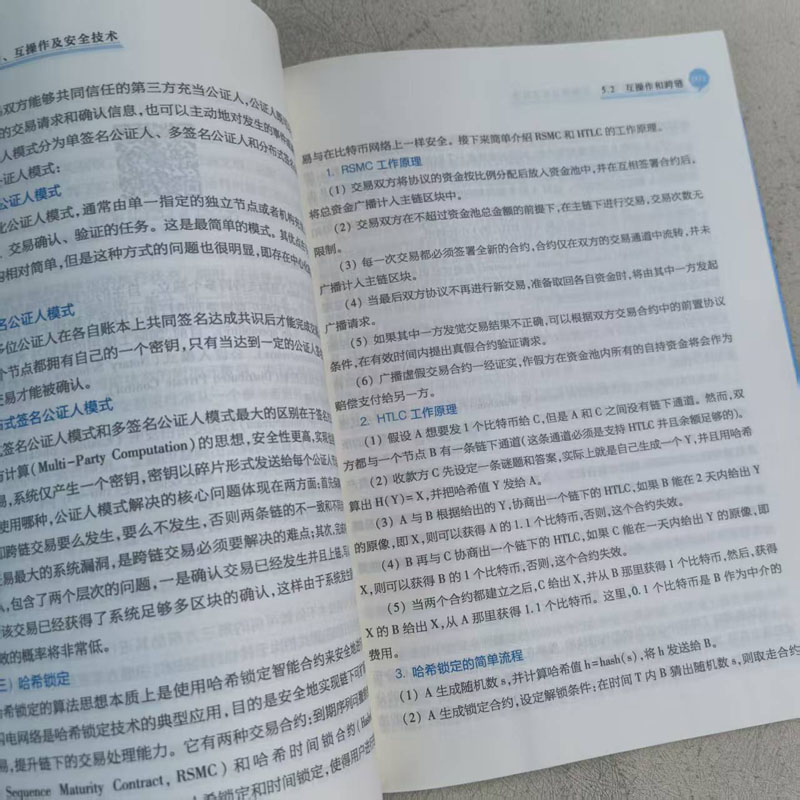 、互操作及安全技术
双方能够共同信任的第三方充当公证人,公证人
的交易请求和确认信息,也可以主动地对发生的事件
人模式分为单签名公证人、多签名公证人和分布式签
证人模式:
公证人模式
化公证人模式,通常由单一指定的独立节点或者机构
、交易确认、验证的任务。这是最简单的模式。其优点
构相对简单,但是这种方式的问题也很明显,即存在中心
名公证人模式
多位公证人在各自账本上共同签名达成共识后才能完成交
个节点都拥有自己的一个密钥,只有当达到一定的公证人
交易才能被确认。
布式签名公证人模式
式签名公证人模式和多签名公证人模式最大的区别在于签名
方计算(Multi-Party Computation)的思想,安全性更高,实现
易,系统仅产生一个密钥,密钥以碎片形式发送给每个公证人
使用哪种,公证人模式解决的核心问题体现在两方面:首先
即跨链交易要么发生,要么不发生,否则两条链的不一致和不
交易最大的系统漏洞,是跨链交易必须要解决的难点;其次,
人,包含了两个层次的问题,一是确认交易已经发生并且上链,
该交易已经获得了系统足够多区块的确认,这样由于系统
效的概率将非常低。
三) 哈希锁定
哈希锁定的算法思想本质上是使用哈希锁定智能合约来安全地
闪电网络是哈希锁定技术的典型应用,目的是安全地实现链下
易,提升链下的交易处理能力。它有两种交易合约:到期序列
Sequence Maturity Contract, RSMC)和哈希时间锁合约(
哈希锁定和时间锁定,使得用户
5.2 互操作和跨链
易与在比特币网络上一样安全。接下来简单介绍 RSMC 和 HTLC 的工作原理。
1. RSMC 工作原理
(1) 交易双方将协议的资金按比例分配后放入资金池中,并在互相签署合约后,
将总资金广播计入主链区块中。
(2) 交易双方在不超过资金池总金额的前提下,在主链下进行交易,交易次数无
限制。
(3) 每一次交易都必须签署全新的合约,合约仅在双方的交易通道中流转,并未
广播计入主链区块。
(4) 当最后双方协议不再进行新交易,准备取回各自资金时,将由其中一方发起
广播请求。
(5) 如果其中一方发觉交易结果不正确,可以根据双方交易合约中的前置协议
条件,在有效时间内提出真假合约验证请求。
(6) 广播虚假交易合约一经证实,作假方在资金池内所有的自持资金将会作为
赔偿支付给另一方。
2. HTLC 工作原理
(1) 假设 A 想要发 1 个比特币给 C,但是 A 和 C 之间没有链下通道。然而,双
方都与一个节点 B 有一条链下通道(这条通道必须是支持 HTLC 并且余额足够的)。
(2) 收款方 C 先设定一条谜题和答案,实际上就是自己生成一个 Y,并且用哈希
算出 H(Y)=X,并把哈希值 Y 发给 A。
(3) A 与 B 根据给出的 Y,协商出一个链下的 HTLC,如果 B 能在 2 天内给出 Y
的原像,即 X,则可以获得 A 的 1.1 个比特币,否则,这个合约失效。
(4) B 再与 C 协商出一个链下的 HTLC,如果 C 能在一天内给出 Y 的原像,即
X,则可以获得 B 的 1 个比特币,否则,这个合约失效。
(5) 当两个合约都建立之后,C 给出 X,并从 B 那里获得 1 个比特币,然后,获得
X 的 B 给出 X,从 A 那里获得 1.1 个比特币。这里,0.1 个比特币是 B 作为中介的
费用。
3. 哈希锁定的简单流程
(1) A 生成随机数 s,并计算哈希值 h=hash(s),将 h 发送给 B。
(2) A 生成锁定合约,设定解锁条件:在时间 T 内 B 猜出随机数 s,则取走合约